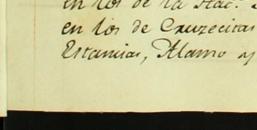 en los de la Hac.
en los de Cruzecitas
Estancias, Alamo y